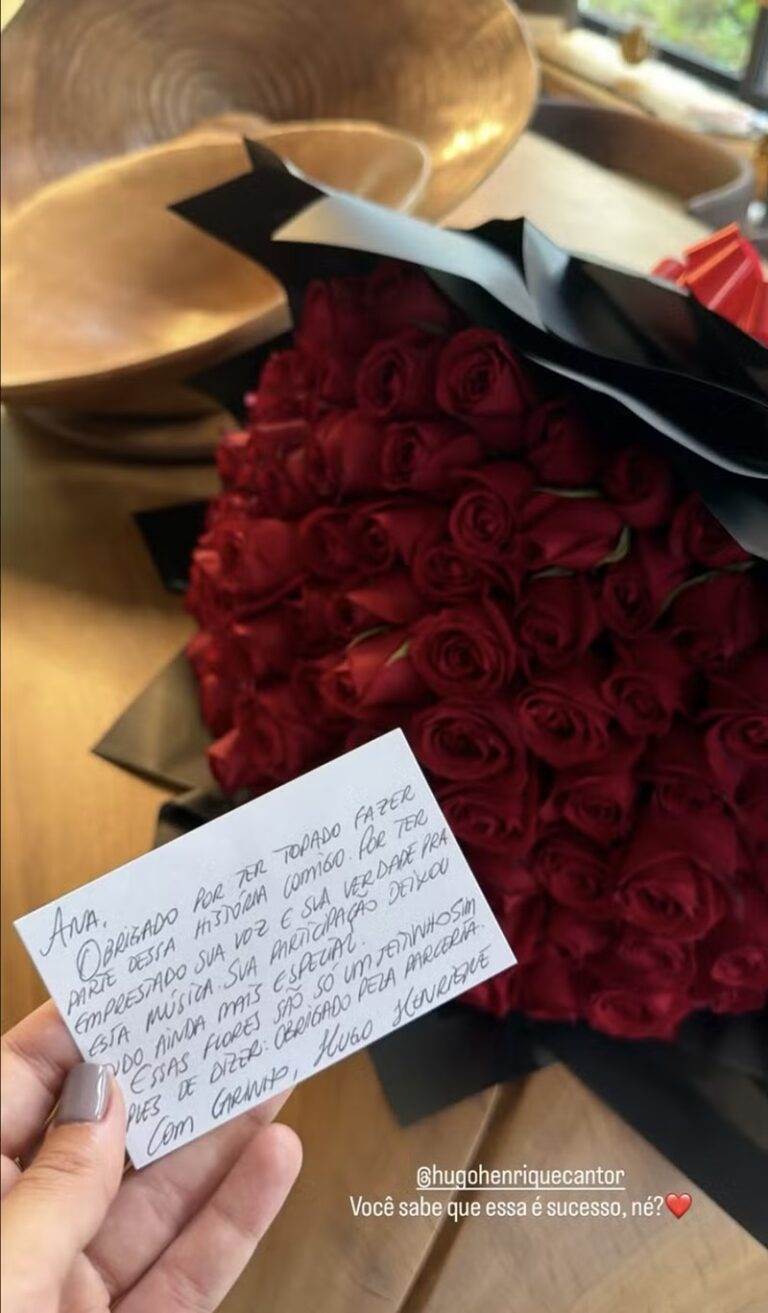 ANA,
OBRIGADO POR TER TOPADO FAZER
PARTE DESSA HISTÓRIA COMIGO. POR TER
EMPRESTADO SUA VOZ E SUA VERDADE PRA
ESTA MÚSICA. SUA PARTICIPAÇÃO DEIXOU
UDO AINDA MAIS ESPECIAL.
ESSAS FLORES SÃO SÓ UM JEITINHO SIM
PLES DE DIZER: OBRIGADO PELA PARCERIA.
COM CARINHO, HUGO HENRIQUE
@hugohenriquecantor
Você sabe que essa é sucesso, né?❤️